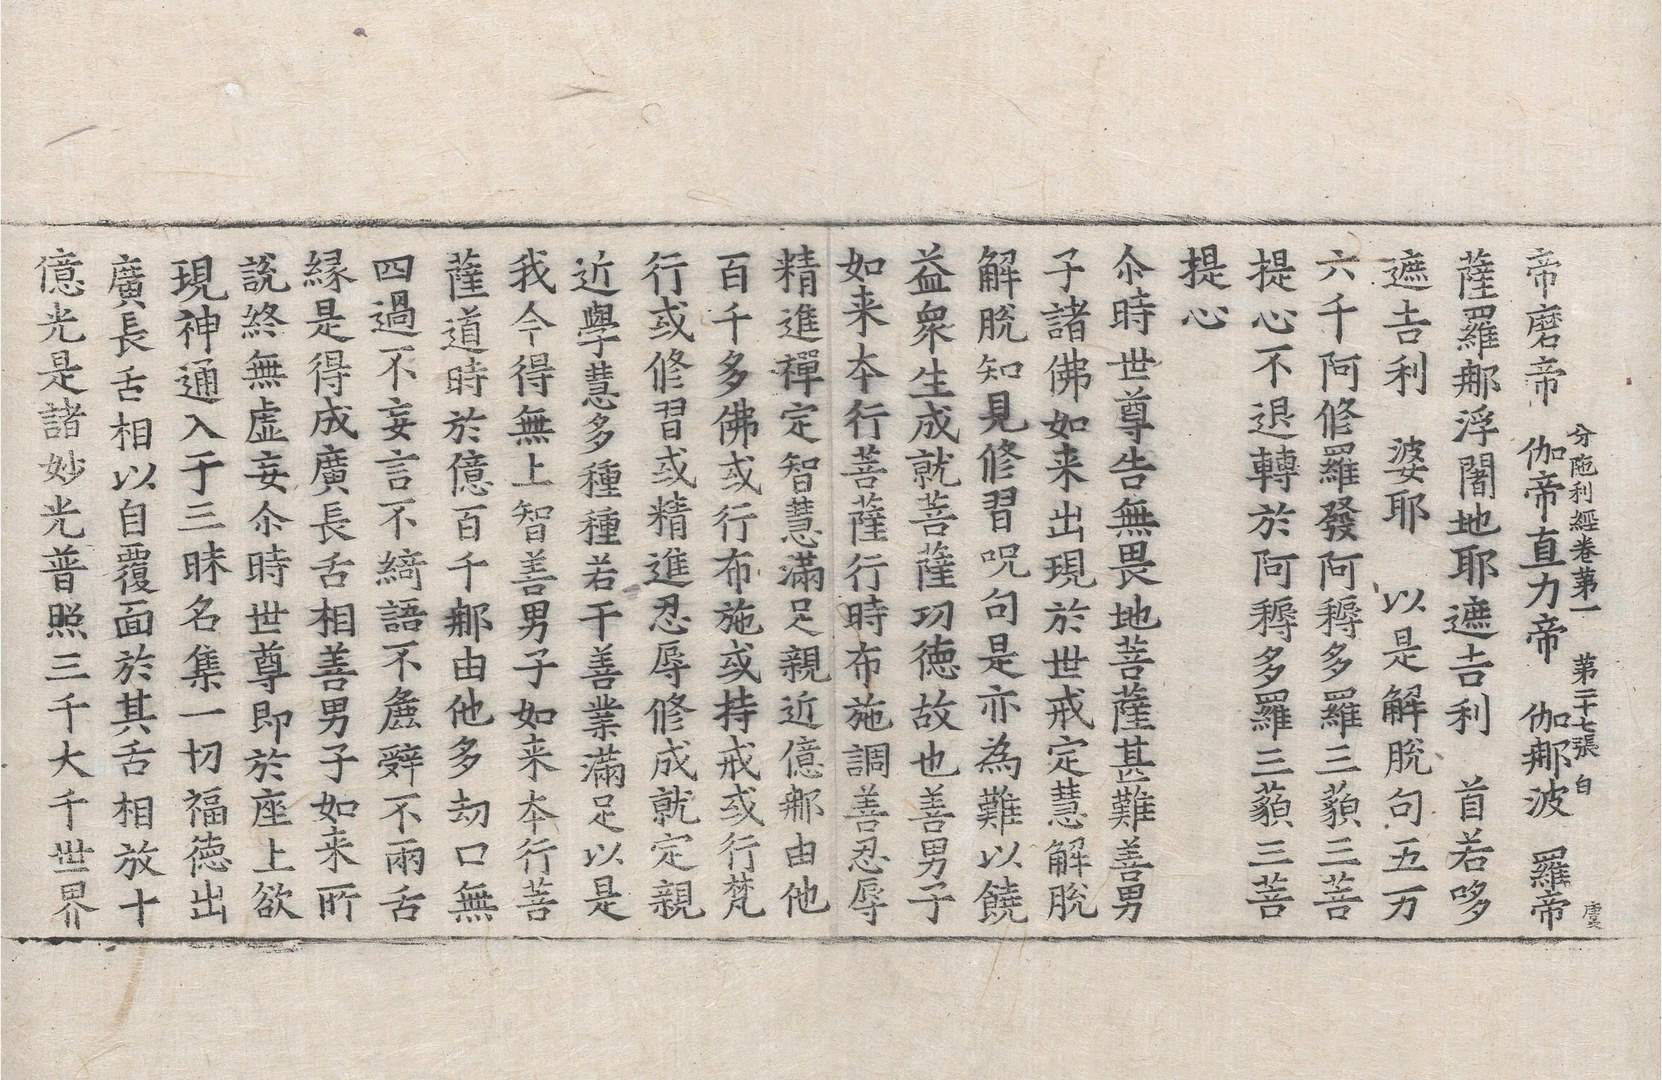 分陁利經卷第一　第二十七張　白
帝磨帝　伽帝直力帝　伽𨚗波　羅帝
薩羅𨚗浮闍地耶遮吉利　首若哆
遮吉利　婆耶　以是解脫句五万
六千阿修羅發阿耨多羅三藐三菩
提心不退轉於阿耨多羅三藐三菩
提心
尒時世尊告無畏地菩薩甚難善男
子諸佛如来出現於世戒定慧解脫
解脫知見修習呪句是亦為難以饒
益衆生成就菩薩功徳故也善男子
如来本行菩薩行時布施調善忍辱
精進禪定智慧滿足親近億𨚗由他
百千多佛或行布施或持戒或行梵
行或修習或精進忍辱修成就定親
近學慧多種種若干善業滿足以是
我今得無上智善男子如来本行菩
薩道時於億百千𨚗由他多劫口無
四過不妄言不綺語不麁辭不兩舌
縁是得成廣長舌相善男子如来所
說終無虚妄尒時世尊即於座上欲
現神通入于三昧名集一切福徳出
廣長舌相以自覆面於其舌相放十
億光是諸妙光普照三千大千世界